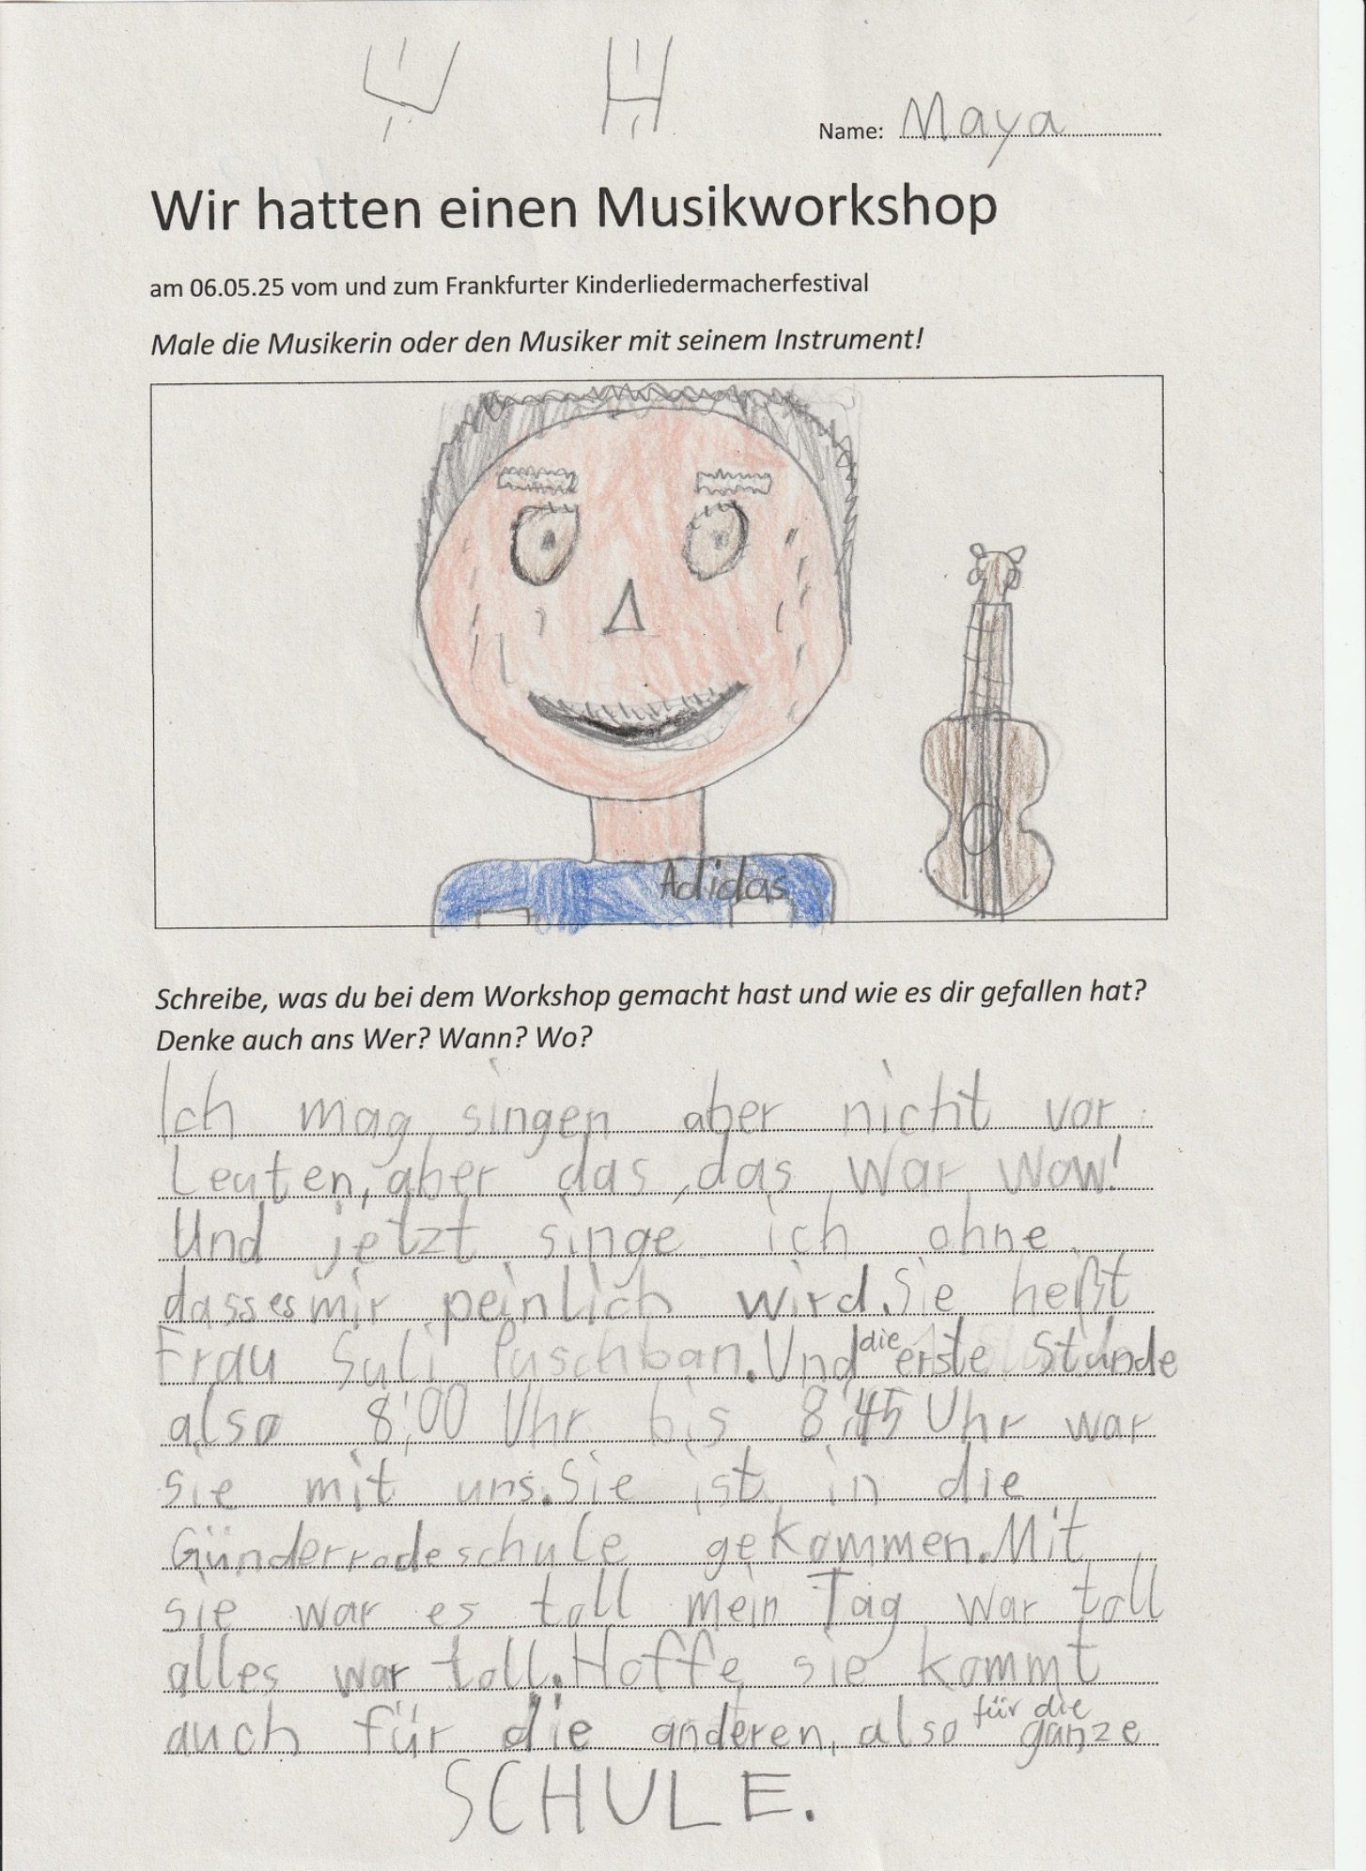 Name: Maya
Wir hatten einen Musikworkshop
am 06.05.25 vom und zum Frankfurter Kinderliedermacherfestival
Male die Musikerin oder den Musiker mit seinem Instrument!
Adidas
Schreibe, was du bei dem Workshop gemacht hast und wie es dir gefallen hat?
Denke auch ans Wer? Wann? Wo?
Ich mag singen aber nicht vor
Leuten, aber das, das war wow!
Und jetzt singe ich ohne
dass es mir peinlich wird. Sie heßt
Frau Suli Puschban. Und die erste Stunde
also 8:00 Uhr bis 8:45 Uhr war
sie mit uns. Sie ist in die
Günderrodeschule gekommen. Mit
sie war es toll mein Tag war toll
alles war toll. Hoffe sie kommt
auch für die anderen, also für die ganze
SCHULE.